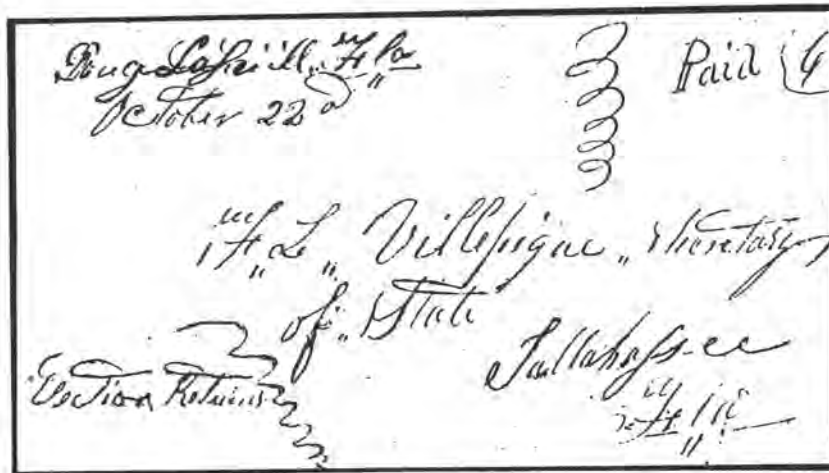 Fla
October 22d
Paid
F,, L,, Villepigue,, Secretary
of,, State
Tallahassee
Election Returns